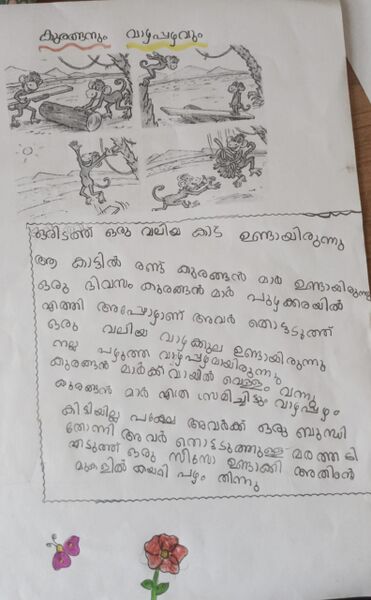 കുരങ്ങനും വാഴപ്പഴവും
ഒരിടത്ത് ഒരു വലിയ കാട് ഉണ്ടായിരുന്നു
ആ കാട്ടിൽ രണ്ട് കുരങ്ങൻ മാർ ഉണ്ടായിരുന്നു
ഒരു ദിവസം കുരങ്ങൻ മാർ പുഴക്കരയിൽ
എത്തി അപ്പോഴാണ് അവർ തൊട്ടടുത്ത്
ഒരു വലിയ വാഴക്കുല ഉണ്ടായിരുന്നു
നല്ല പഴുത്ത വാഴപ്പഴമായിരുന്നു
കുരങ്ങൻ മാർക്ക് വായിൽ വെള്ളം വന്നു
കുരങ്ങൻ മാർ എത്ര ശ്രമിച്ചിട്ടും വാഴപ്പഴം
കിട്ടിയില്ല പക്ഷേ അവർക്ക് ഒരു ബുദ്ധി
തോന്നി അവർ തൊട്ടടുത്തുള്ള മരത്തടി
എടുത്ത് ഒരു സീസോ ഉണ്ടാക്കി അതിൻ
മുകളിൽ കയറി പഴം തിന്നു